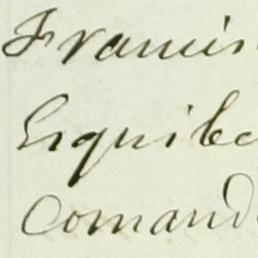 Francis
Esquibe
Comand